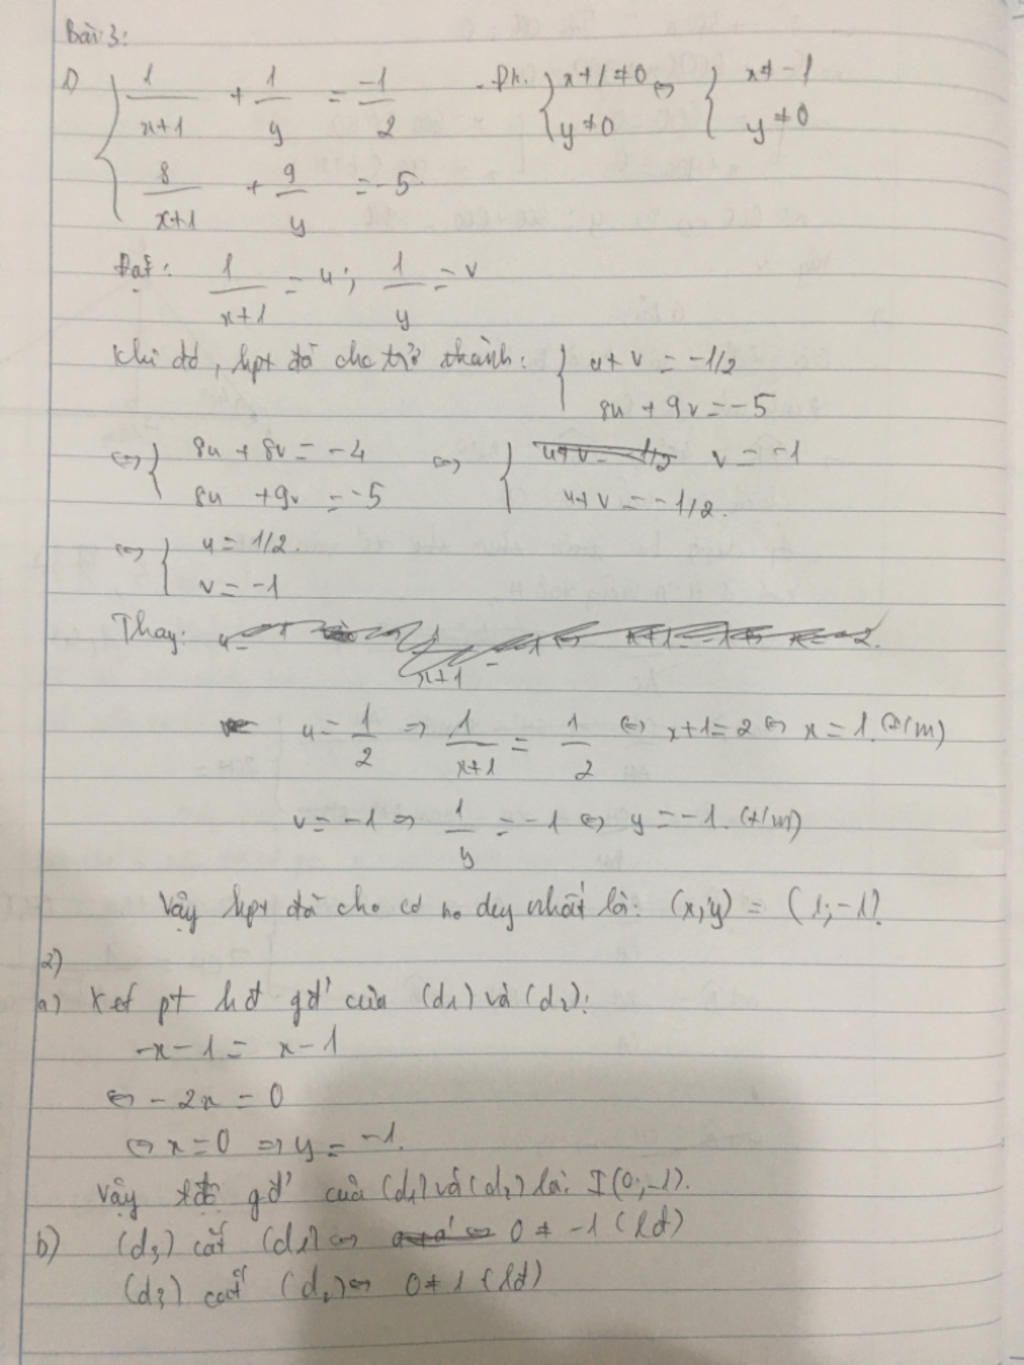 Bài 3:
1) { 1/(x+1) + 1/y = -1/2 - Đk: { x+1≠0 ⇔ { x≠-1
y≠0 y≠0
8/(x+1) + 9/y = -5
Đặt: 1/(x+1) = u; 1/y = v
Khi đó, hpt đã cho trở thành: { u+v = -1/2
8u + 9v = -5
⇔ { 8u + 8v = -4 ⇔ { v = -1
8u + 9v = -5 u+v = -1/2.
⇔ { u = 1/2.
v = -1
Thay:
u = 1/2 ⇒ 1/(x+1) = 1/2 ⇔ x+1=2 ⇔ x = 1. (t/m)
v = -1 ⇒ 1/y = -1 ⇔ y = -1. (t/m)
Vậy hpt đã cho có no duy nhất là: (x;y) = (1;-1).
2)
a) Xét pt hđ gđ' của (d1) và (d2):
-x-1 = x-1
⇔ -2x = 0
⇔ x=0 ⇒ y = -1.
Vậy tđộ gđ' của (d1) và (d2) là: I(0;-1).
b) (d3) cắt (d1) ⇔ 0 ≠ -1 (lđ)
(d3) cắt (d2) ⇔ 0≠1 (lđ)